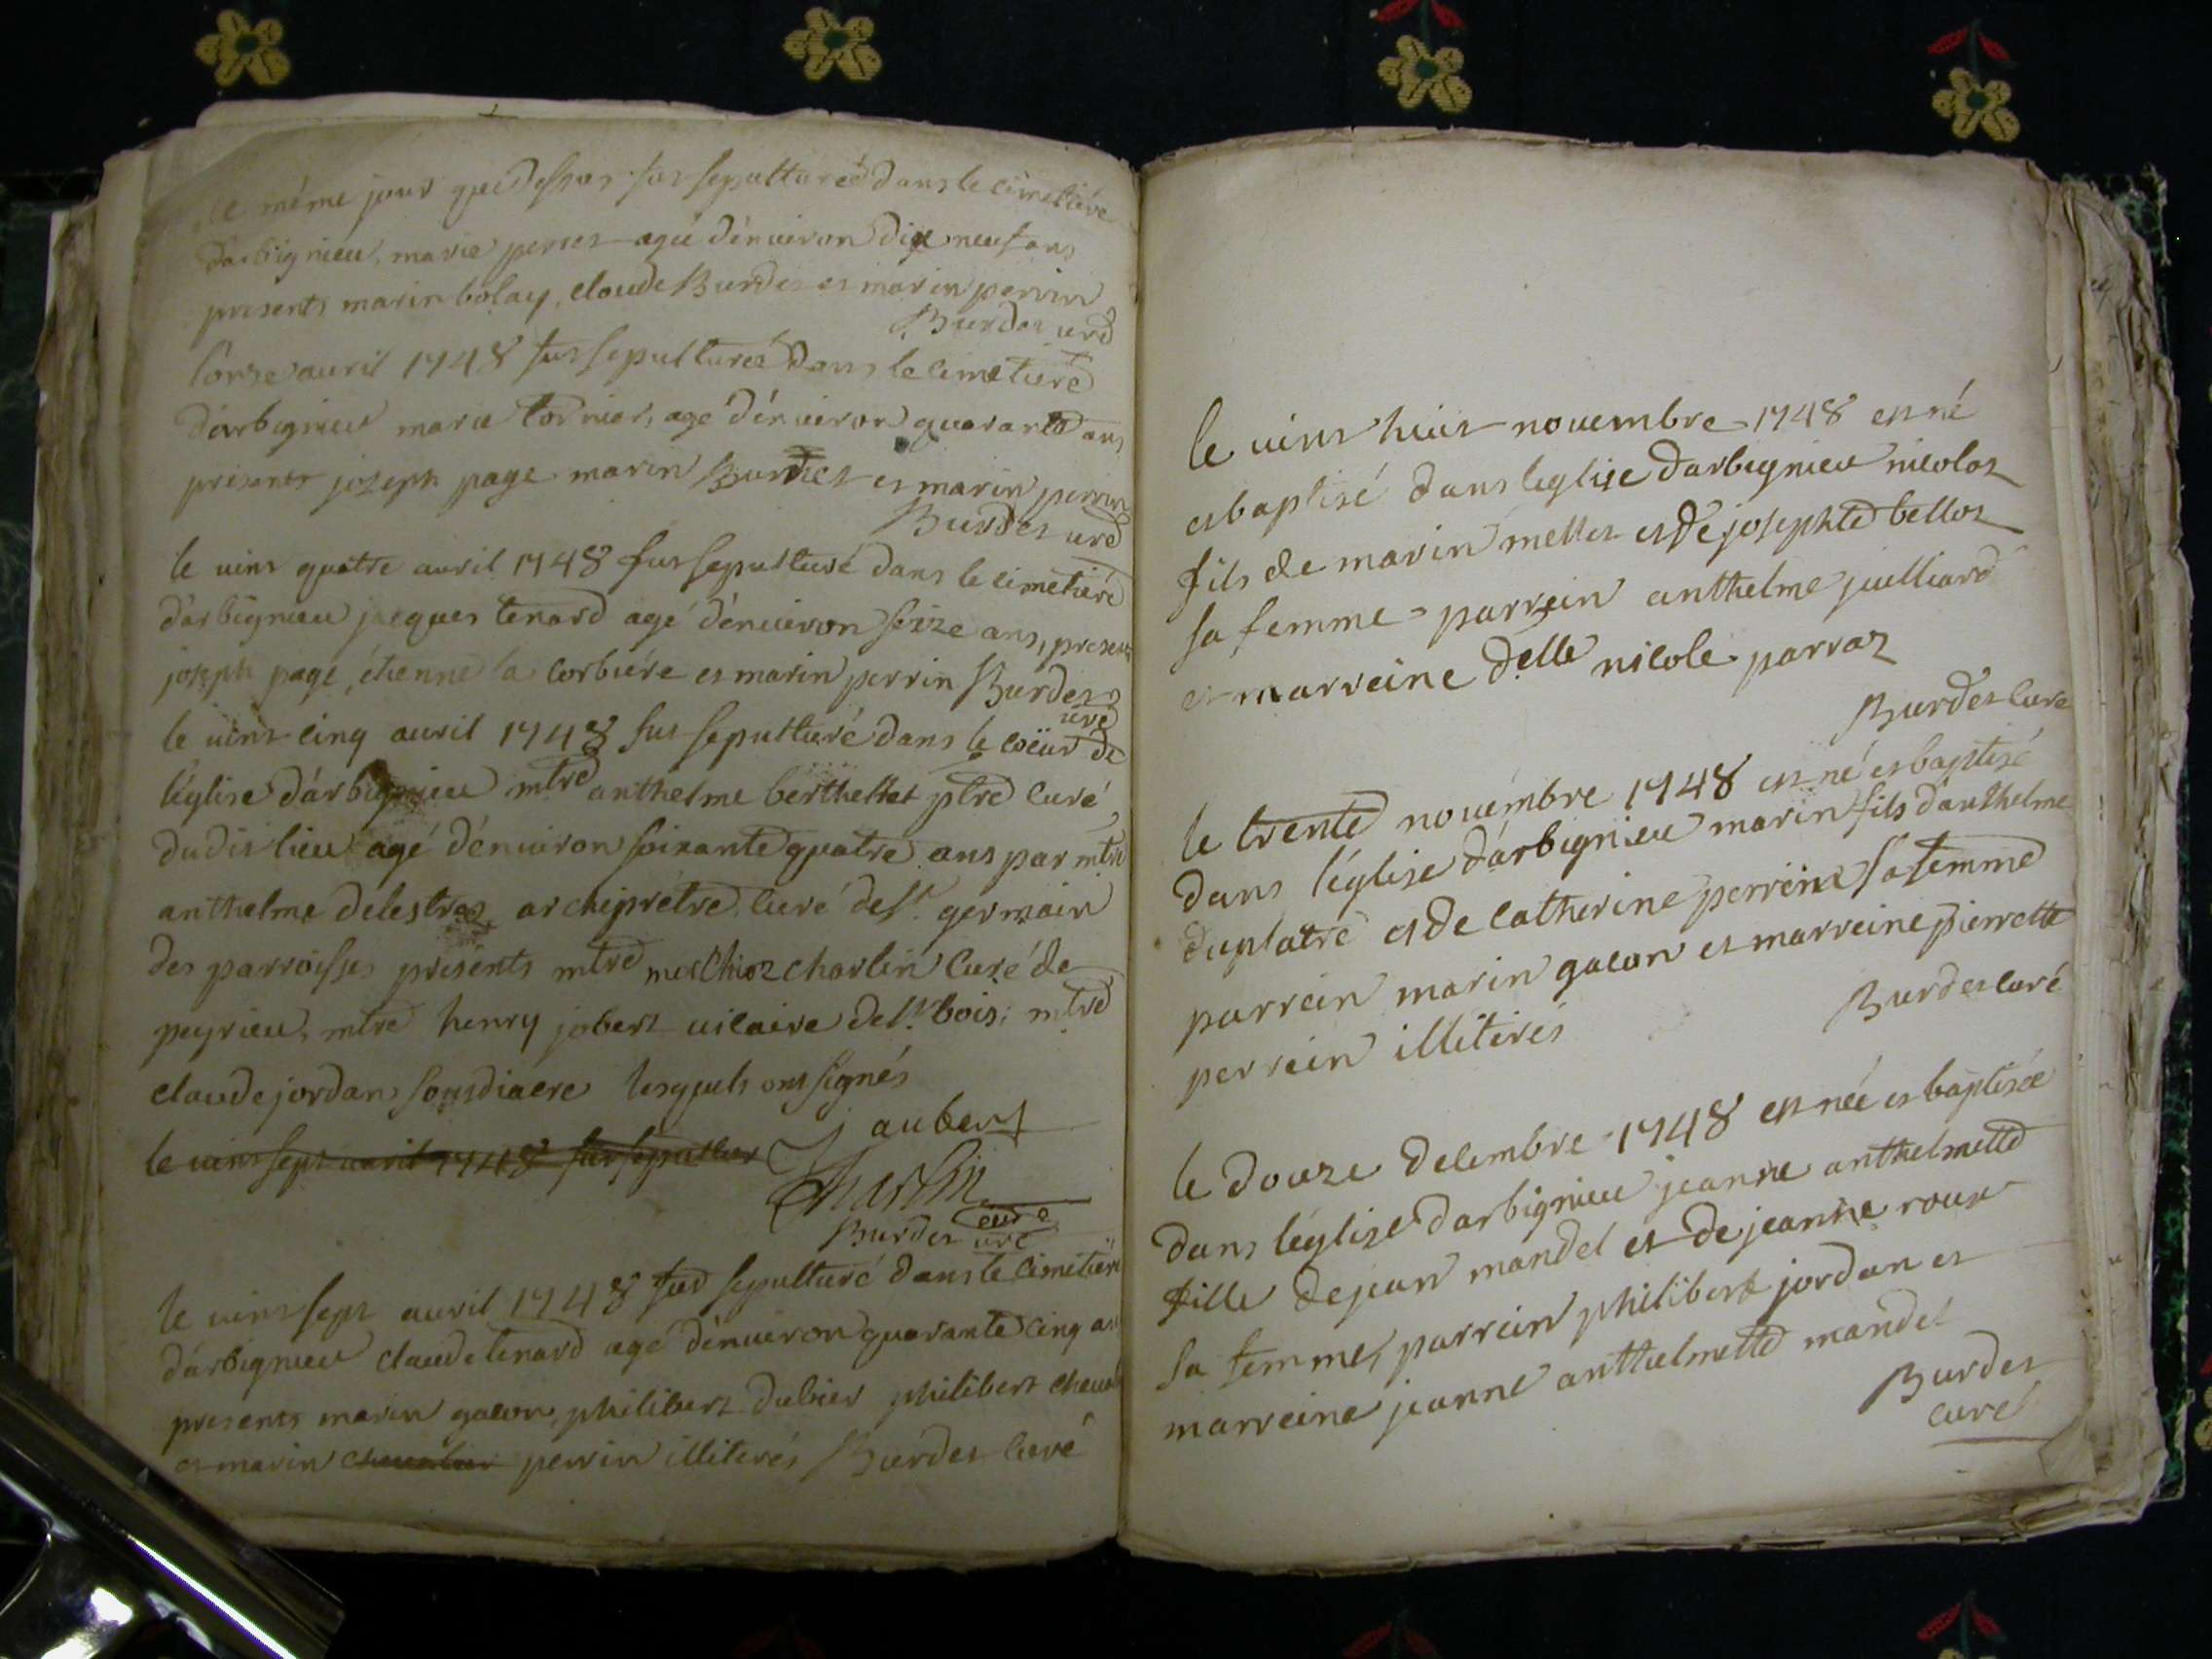 le même jour que dessus fut sepulturéé dans le cimetiére
d'arbignieu, marie perret agéé d'énuiron dix neuf ans
presents marin bolay, claude Burdet et marin perrin
Burdet curé
l'onze auril 1748 fut sepulturéé dans le cimetiére
d'arbignieu marie tornier, agé d'énuiron quarante ans
présents joseph page marin Burdet et marin perrin
Burdet curé
le uint quatre auril 1748 fut sepulturé dans le cimetiére
d'arbignieu jacques tenard agé d'énuiron seize ans, presents
joseph page, étienne la corbiére et marin perrin Burdet
curé
le uint cinq auril 1748 fut sepulturé dans le coeur de
l'église d'arbignieu mtre anthelme berthellet ptre curé
dudit lieu agé d'énuiron soixante quatre ans par mtre
anthelme delestraz archiprétre curé de st. germain
des parroisses présents mtre melchioz charlin curé de
peyrieu, mtre henry jobert uicaire de st. bois; mtre
claude jordan sousdiacre lesquels ont signés
le uint sept auril 1748 fut sepultur J aubert
Charlin
curé
Burdet curé
le uint sept auril 1748 fut sepulturé dans le cimetiére
d'arbignieu claude tenard agé d'énuiron quarante cinq ans
presents marin galon, philibert dubier philibert
et marin cheualier perrin illiterés Burdet curé
le uint huit nouembre 1748 est né
et baptisé dans l'eglise d'arbignieu nicolas
fils de marin mellet et de josephte belloz
sa femme parrein anthelme juilliard
et marreine delle nicole parraz
Burdet curé
le trente nouémbre 1748 est né et baptisé
dans l'église d'arbignieu marin fils d'anthelme
duplatre et de catherine perrein sa femme
parrein marin galon et marreine pierrette
perrein illiterés
Burdet curé
le douze decembre 1748 est néé et baptiséé
dans l'église d'arbignieu jeanne anthelmette
fille de jean mandel et de jeanne roux
sa femme, parrein philibert jordan et
marreine jeanne anthelmette mandel
Burdet
curé